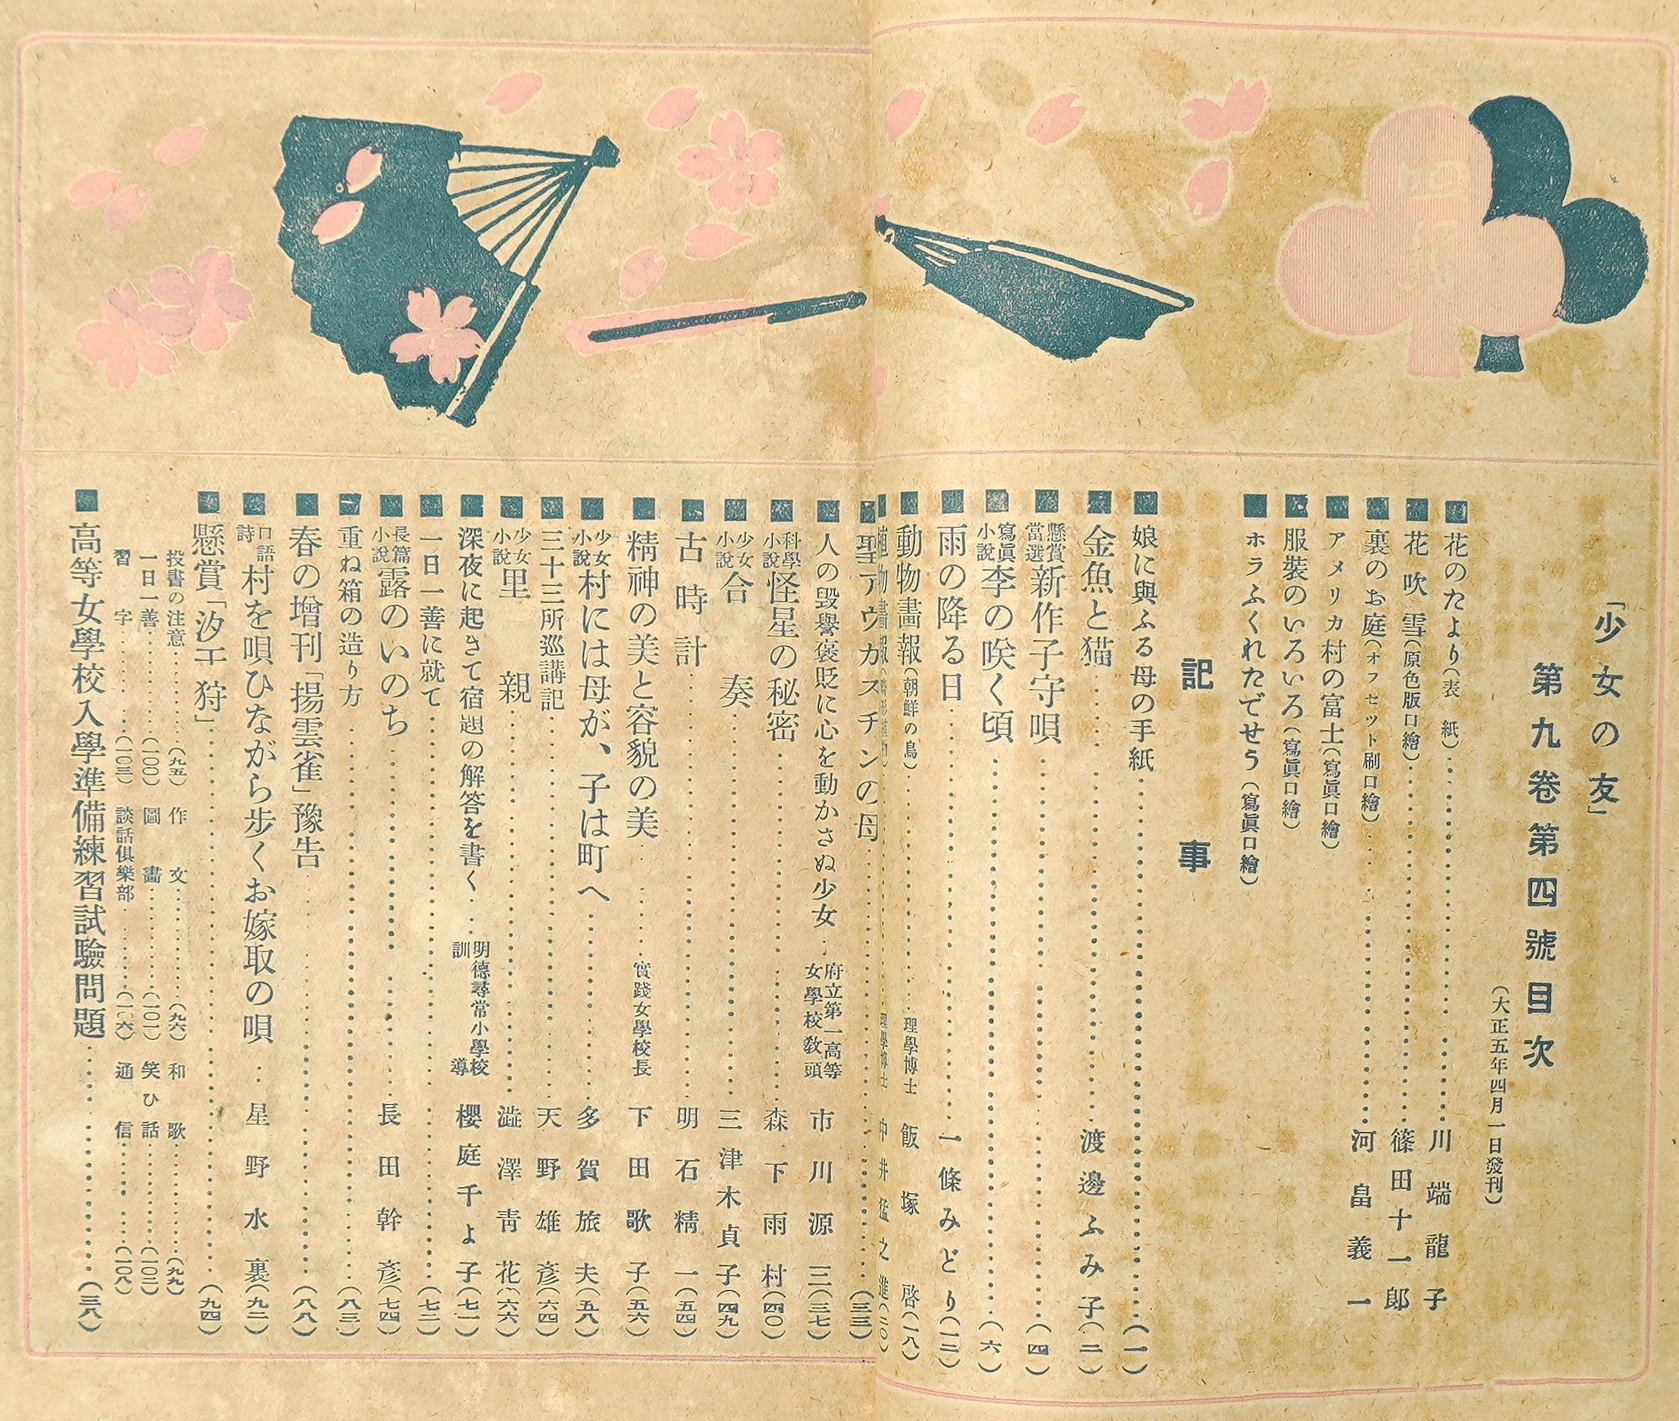 「少女の友」
第九卷第四號目次
(大正五年四月一日發刊)
花のたより(表紙)……川端龍子
花吹雪(原色版口繪)……篠田十一郎
裏のお庭(オフセツト刷口繪)……河畠義一
アメリカ村の富士(寫眞口繪)
服裝のいろいろ(寫眞口繪)
ホラふくれたでせう(寫眞口繪)
記事
娘に與ふる母の手紙……(一)
金魚と猫……渡邊ふみ子(二)
懸賞當選新作子守唄……(四)
寫眞小説李の咲く頃……(六)
雨の降る日……一條みどり(一三)
動物畫報(朝鮮の鳥)……理學博士 飯塚啓(一八)
植物畫報……理學博士 中井猛之進(二〇)
聖アウガスチンの母……(三三)
人の毀譽褒貶に心を動かさぬ少女……府立第一高等女學校教頭 市川源三(三七)
科學小説怪星の秘密……森下雨村(四〇)
少女小説合奏……三津木貞子(四九)
古時計……明石精一(五四)
精神の美と容貌の美……實踐女學校長 下田歌子(五六)
少女小説村には母が、子は町へ……多賀旅夫(五八)
三十三所巡講記……天野雄彦(六四)
少女小説里親……澁澤青花(六六)
深夜に起きて宿題の解答を書く……明德尋常小學校訓導 櫻庭千よ子(七一)
一日一善に就て……(七二)
長篇小説露のいのち……長田幹彦(七四)
重ね箱の造り方……(八三)
春の增刊「揚雲雀」豫告……(八八)
口語詩村を唄ひながら歩くお嫁取の唄……星野水裏(九二)
懸賞「汐干狩」……(九四)
投書の注意……(九五) 作文……(九六) 和歌……(九九)
一日一善……(一〇〇) 圖畫……(一〇一) 笑ひ話……(一〇二)
習字……(一〇三) 談話俱樂部……(一〇六) 通信……(一〇八)
高等女學校入學準備練習試驗問題……(三八)